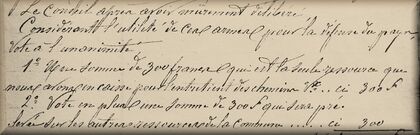 Le Conseil après avoir mûrement délibéré
Considérant l'utilité de ces armes pour la défense du pays
Vote à l'unanimité
1º Une somme de 300 francs qui est la seule ressource que
nous avons en caisse pour l'entretien des chemins Vx... ci 300 f
2º Vote en plus une somme de 300 f qui sera pré-
levée sur les autres ressources de la commune .... ci 300